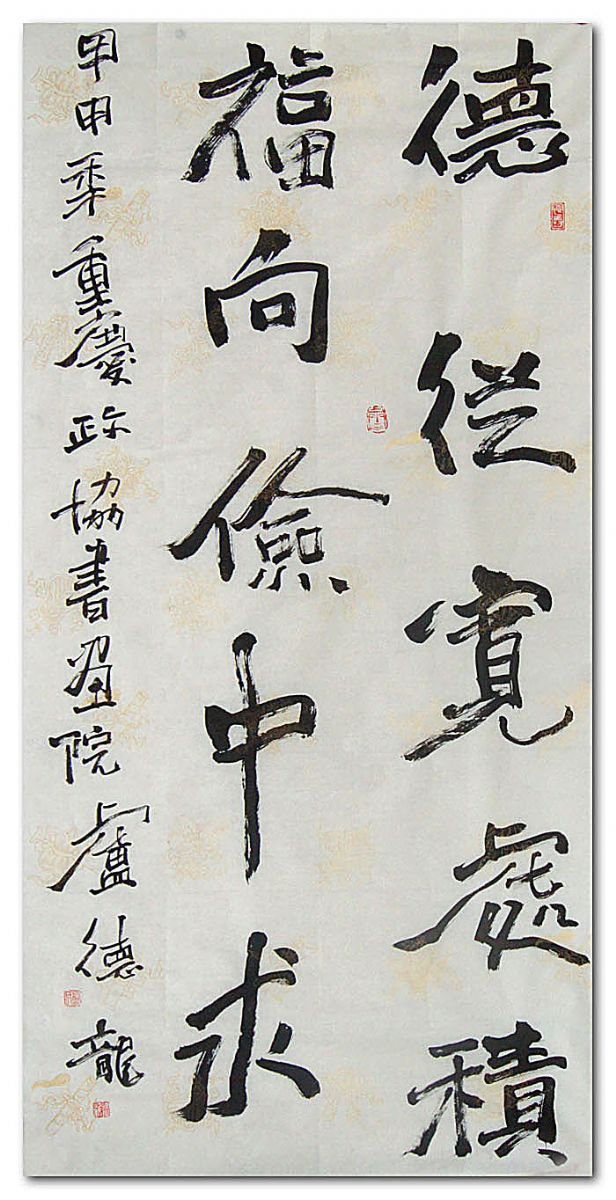 德從寬處積
福向儉中求
甲申季重慶政協書畫院盧德龍